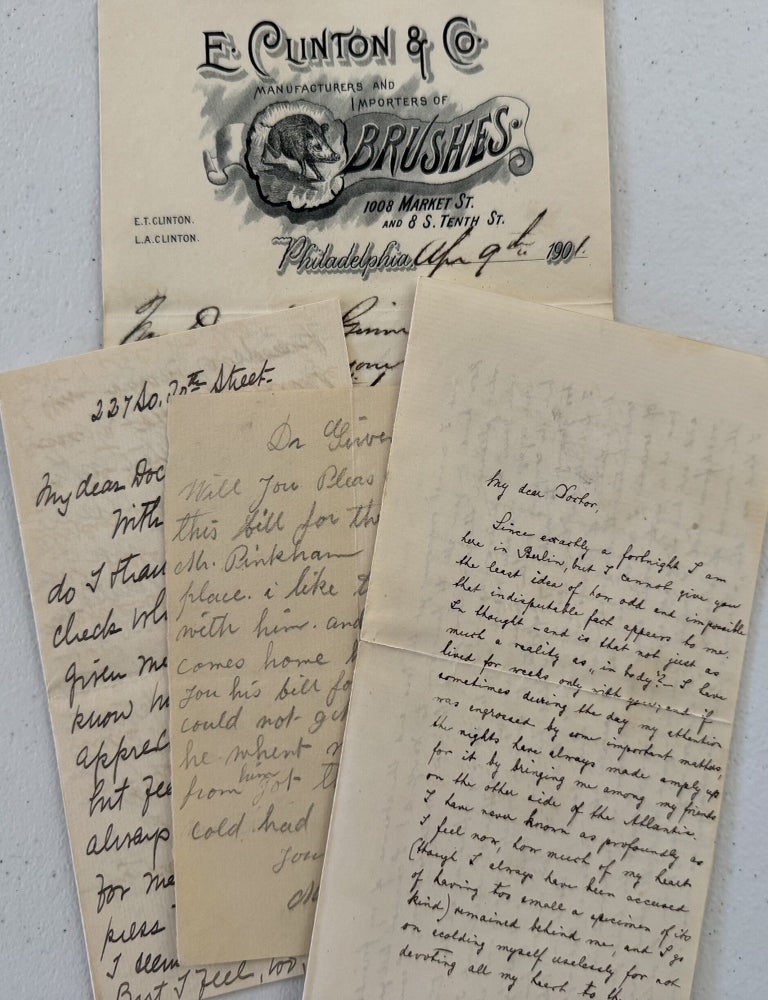 E. CLINTON & CO.
MANUFACTURERS AND
IMPORTERS OF
BRUSHES
1008 MARKET ST.
AND 8 S. TENTH ST.
E.T. CLINTON.
L.A. CLINTON.
Philadelphia, Apr 9th 1901.
227 So. 20th Street.
My dear Doc
With
do I than
check wh
given me
know h
apprec
but fee
always
for me
press
I seem
But I feel, too,
Dr Girve
Will You Pleas
this bill for the
Mr. Pinkham
place. i like t
with him. and
comes home
You his bill fo
could not get
he whent
from him got th
cold had
You
My dear Doctor,
Since exactly a fortnight I am
here in Berlin, but I cannot give you
the least idea of how odd and impossible
that indisputable fact appears to me.
In thought – and is that not just as
much a reality as „in body"? – I have
lived for weeks only with you; and if
sometimes during the day my attention
was engrossed by some important matters,
the nights have always made amply up
for it by bringing me among my friends
on the other side of the Atlantic.
I have never known as profoundly as
I feel now, how much of my heart
(though I always have been accused
of having too small a specimen of its
kind) remained behind me, and I go
on scolding myself uselessly for not
devoting all my heart to th